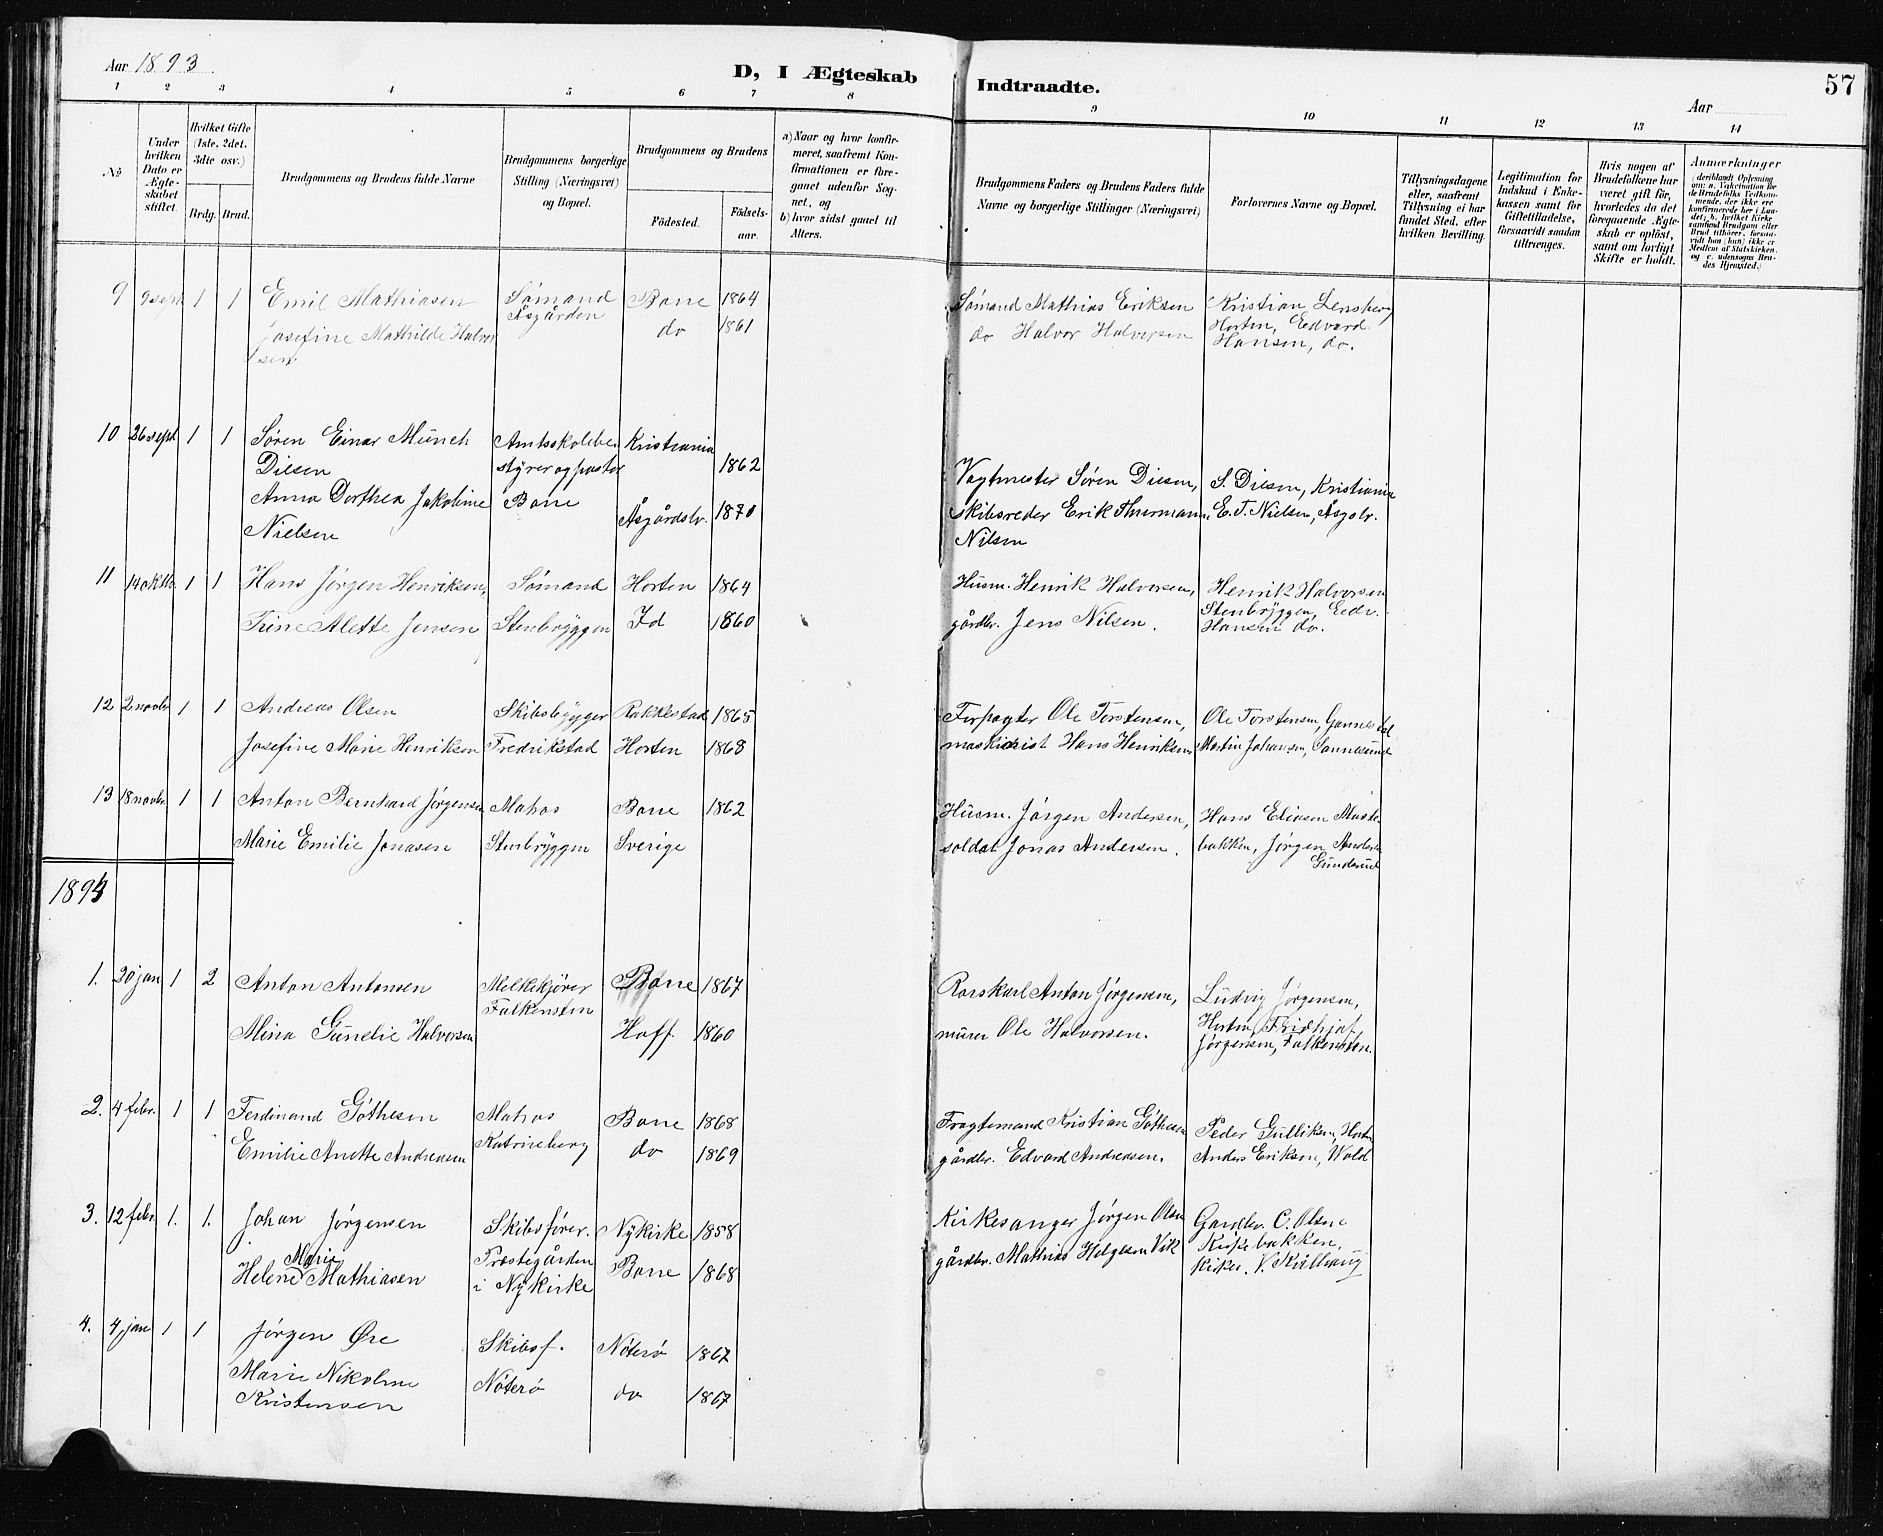 Aar 1893.
D, I Ægteskab
Indtraadte.
Aar
57
1 2 3 4 5 6 7 8 9 10 11 12 13 14
No
Under hvilken Dato er Ægteskabet stiftet.
Hvilket Gifte (1ste, 2det, 3die osv.)
Brdg. Brud.
Brudgommens og Brudens fulde Navne
Brudgommens borgerlige Stilling (Næringsvei) og Bopæl.
Brudgommens og Brudens
Fødested. Fødselsaar.
a) Naar og hvor konfirmeret, saafremt Konfirmationen er foregaaet udenfor Sognet, og
b) hvor sidst gaaet til Alters.
Brudgommens Faders og Brudens Faders fulde Navne og borgerlige Stillinger (Næringsvei)
Forlovernes Navne og Bopæl.
Tillysningsdagene eller, saafremt Tillysning ei har fundet Sted, efter hvilken Bevilling.
Legitimation for Indskud i Enkekassen samt for Giftetilladelse, forsaavidt saadan tiltrænges.
Hvis nogen af Brudefolkene har været gift før, hvorledes da det foregaaende Ægteskab er opløst, samt om lovligt Skifte er holdt.
Anmærkninger (deriblandt Oplysning om: a. Vaksination for de Brudefolks Vedkommende, der ikke ere konfirmerede her i Landet; b. hvilket Kirkesamfund Brudgom eller Brud tilhører, forsaavidt han (hun) ikke er Medlem af Statskirken, og c. udensogns Brudes Hjemsted.)
9 9 sept 1 1 Emil Mathiasen Sømand Borre 1864 Sømand Mathias Eriksen Kristian Lensberg
Åsgården Horten, Edvard
Josefine Mathilde Halvor do 1861 do Halvor Halvorsen Hansen, do.
sen
10 26 sept 1 1 Søren Einar Münch Amtsskolebe Kristiania
Diesen styrer og pastor 1862 Vagtmester Søren Diesen, S. Diesen, Kristiania
Anna Dorthea Jakobine Borre Åsgårdstr. 1870 Skibsreder Erik Thurmann E. T. Nielsen, Åsgstr.
Nielsen Nilsen
11 14 oktb 1 1 Hans Jørgen Henriksen, Sømand Horten 1864 Husm. Henrik Halvorsen, Henrik Halvorsen
Stenbryggen, Edv.
Trine Alette Jensen Stenbryggen Id 1860 gårdbr. Jens Nilsen. Hansen do.
12 2 novbr 1 1 Andreas Olsen Skibsbygger Rakkestad 1865 Forpagter Ole Torstensen, Ole Torstensen,
Josefine Marie Henriksen Fredrikstad Horten 1868 maskinist Hans Henriksen Martin Johansen, Sannesund
13 18 novbr. 1 1 Anton Bernhard Jørgensen Matros Borre 1862 Husm. Jørgen Andersen, Hans Eliasen
Marie Emilie Jonasen Stenbryggen Sverige soldat Jonas Andersen. bakken, Jørgen Anders
Gunderud
1894
1. 20 jan 1 2 Anton Antonsen Melkekjører Borre 1867 Rorskarl Anton Jørgensen, Ludvig Jørgensen,
Falkensten Horten, Fridhjof
Mina Gunelie Halvorsen Hoff. 1860 murer Ole Halvorsen. Jørgensen, Falkensten.
2. 4 febr. 1 1 Ferdinand Gøthesen Matros Borre 1868 Fragtemand Kristian Gøthesen Peder Gulliksen, Horten
Emilie Anette Andreasen Katrineberg do 1869 gårdbr. Edvard Andreasen. Anders Eriksen, Wold
3. 12 febr. 1. 1. Johan Jørgensen Skibsfører. Nykirke 1858 Kirkesanger Jørgen Olsen Gårdbr. C. Olsen
Marie Præstegården Kirkebakken,
Helene Mathiasen i Nykirke Borre 1868 gårdbr. Mathias Helgesen Vik
4. 4 jan 1 1 Jørgen Øre Skibsf. Nøterø 1867
Marie Nikoline Nøterø do 1867
Kristensen